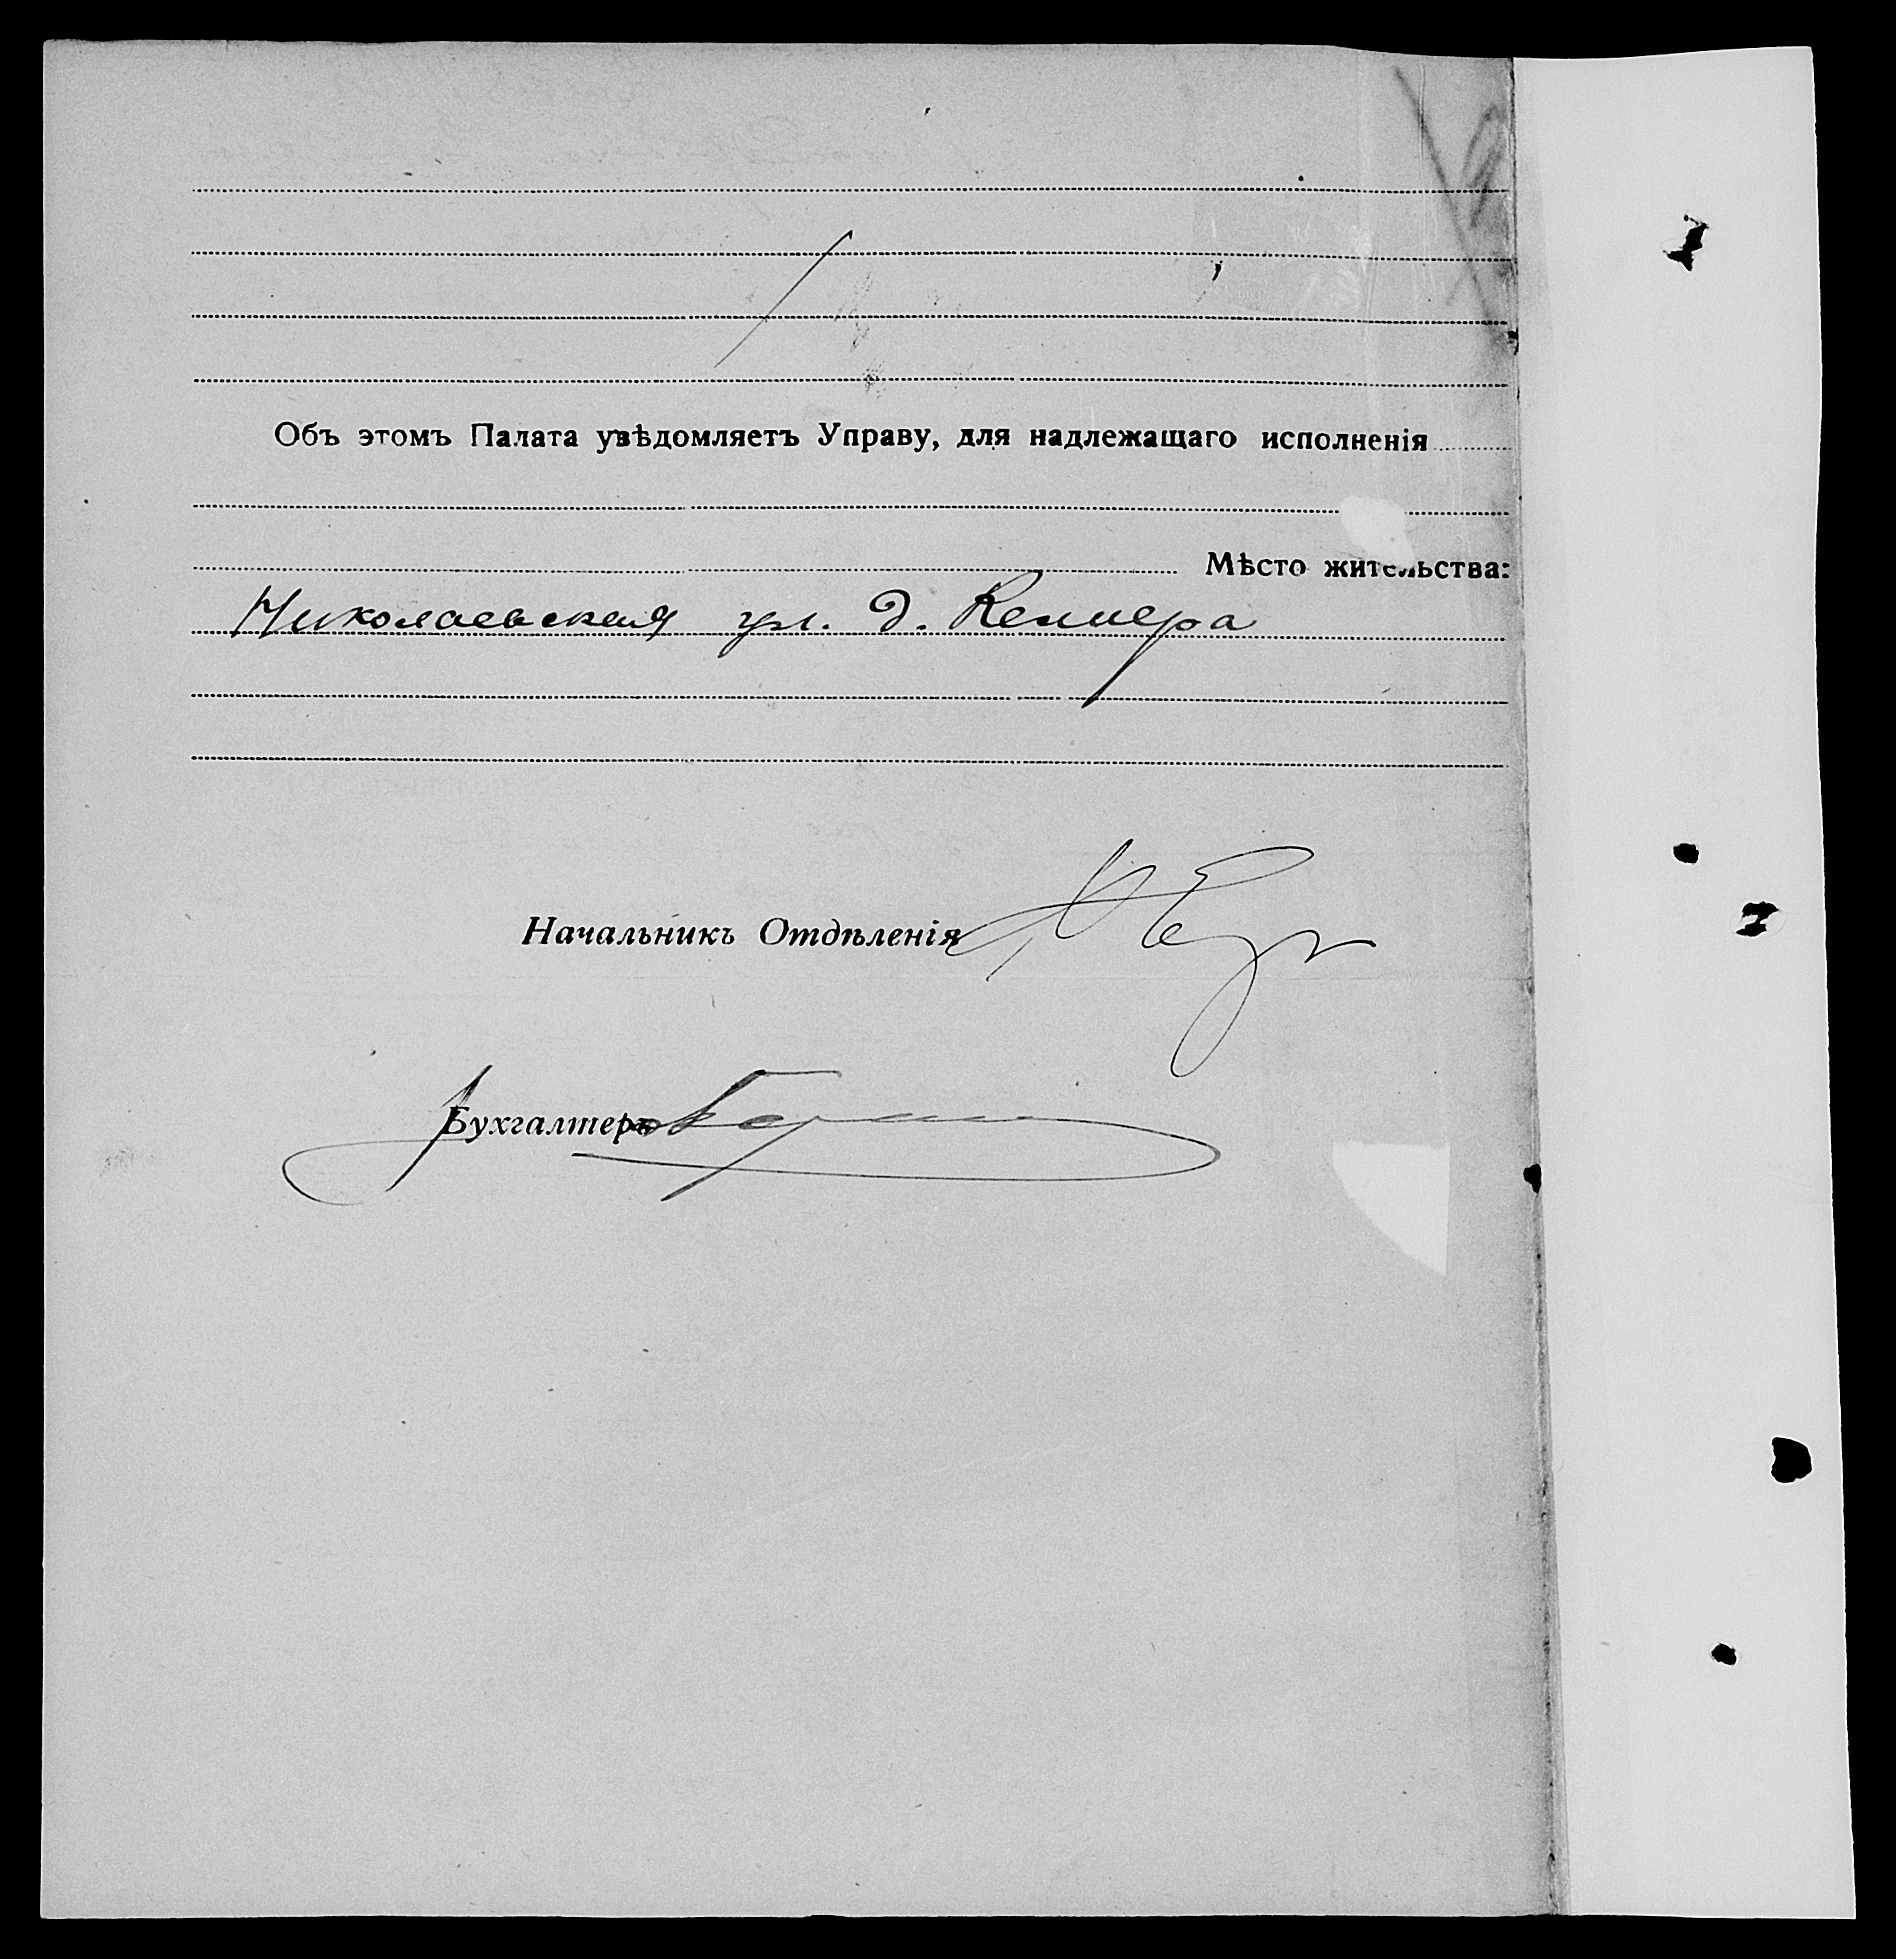 Объ этомъ Палата увѣдомляетъ Управу, для надлежащаго исполненія
Мѣсто жительства:
Николаевская ул. д.
Начальникъ Отдѣленія
Бухгалтеръ